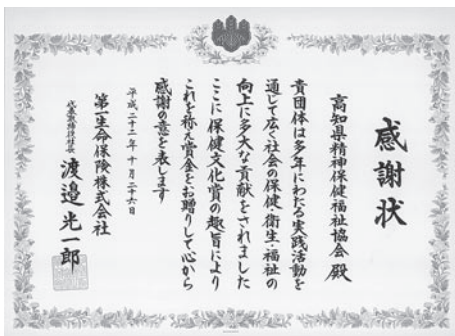 感謝状
高知県精神保健福祉協会 殿
貴団体は多年にわたる実践活動を
通じて広く社会の保健・衛生・福祉の
向上に多大な貢献をされました
ここに保健文化賞の趣旨により
これを称え賞金をお贈りして心から
感謝の意を表します
平成二十二年十月二十六日
第一生命保険株式会社
代表取締役社長 渡邉光一郎